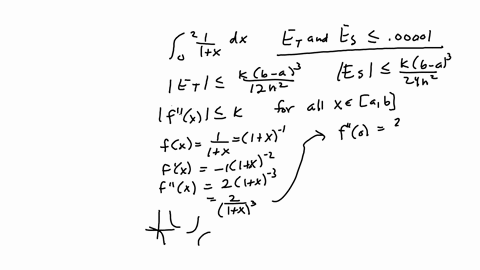 ∫₀² 1/(1+x) dx    E_T and E_S ≤ .00001
|E_T| ≤ k(b-a)³/12n²    |E_S| ≤ k(b-a)³/24n²
|f''(x)| ≤ k    for all x ∈ [a,b]
f(x) = 1/(1+x) = (1+x)⁻¹    f''(0) = 2
f'(x) = -1(1+x)⁻²
f''(x) = 2(1+x)⁻³
= 2/(1+x)³